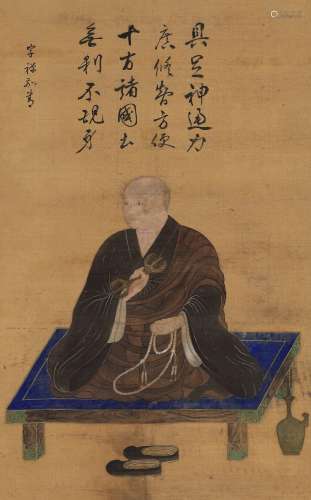 具足神通力
廣修智方便
十方諸國土
無刹不現身